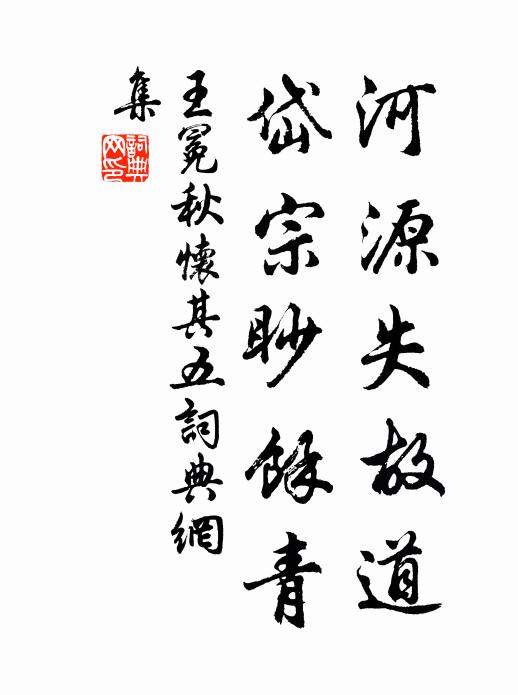 河源失故道
岱宗眇餘青
王冕秋懷其五詞典網
集
詞典網印